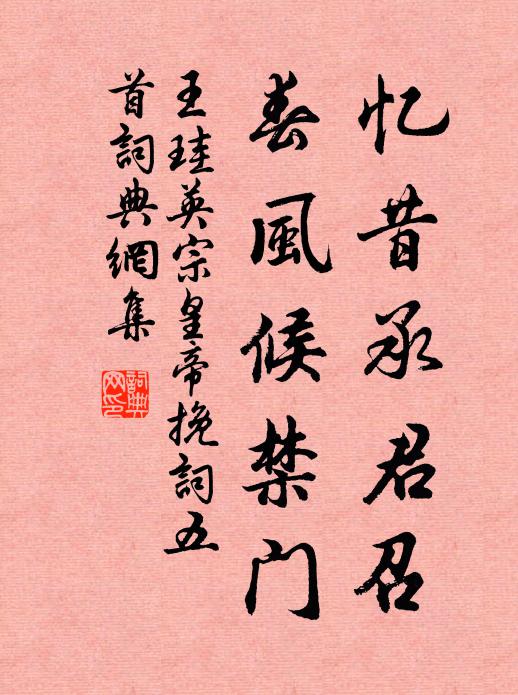 忆昔承君召
春風候禁门
王珪英宗皇帝挽詞五
首詞典網集
詞典
网印